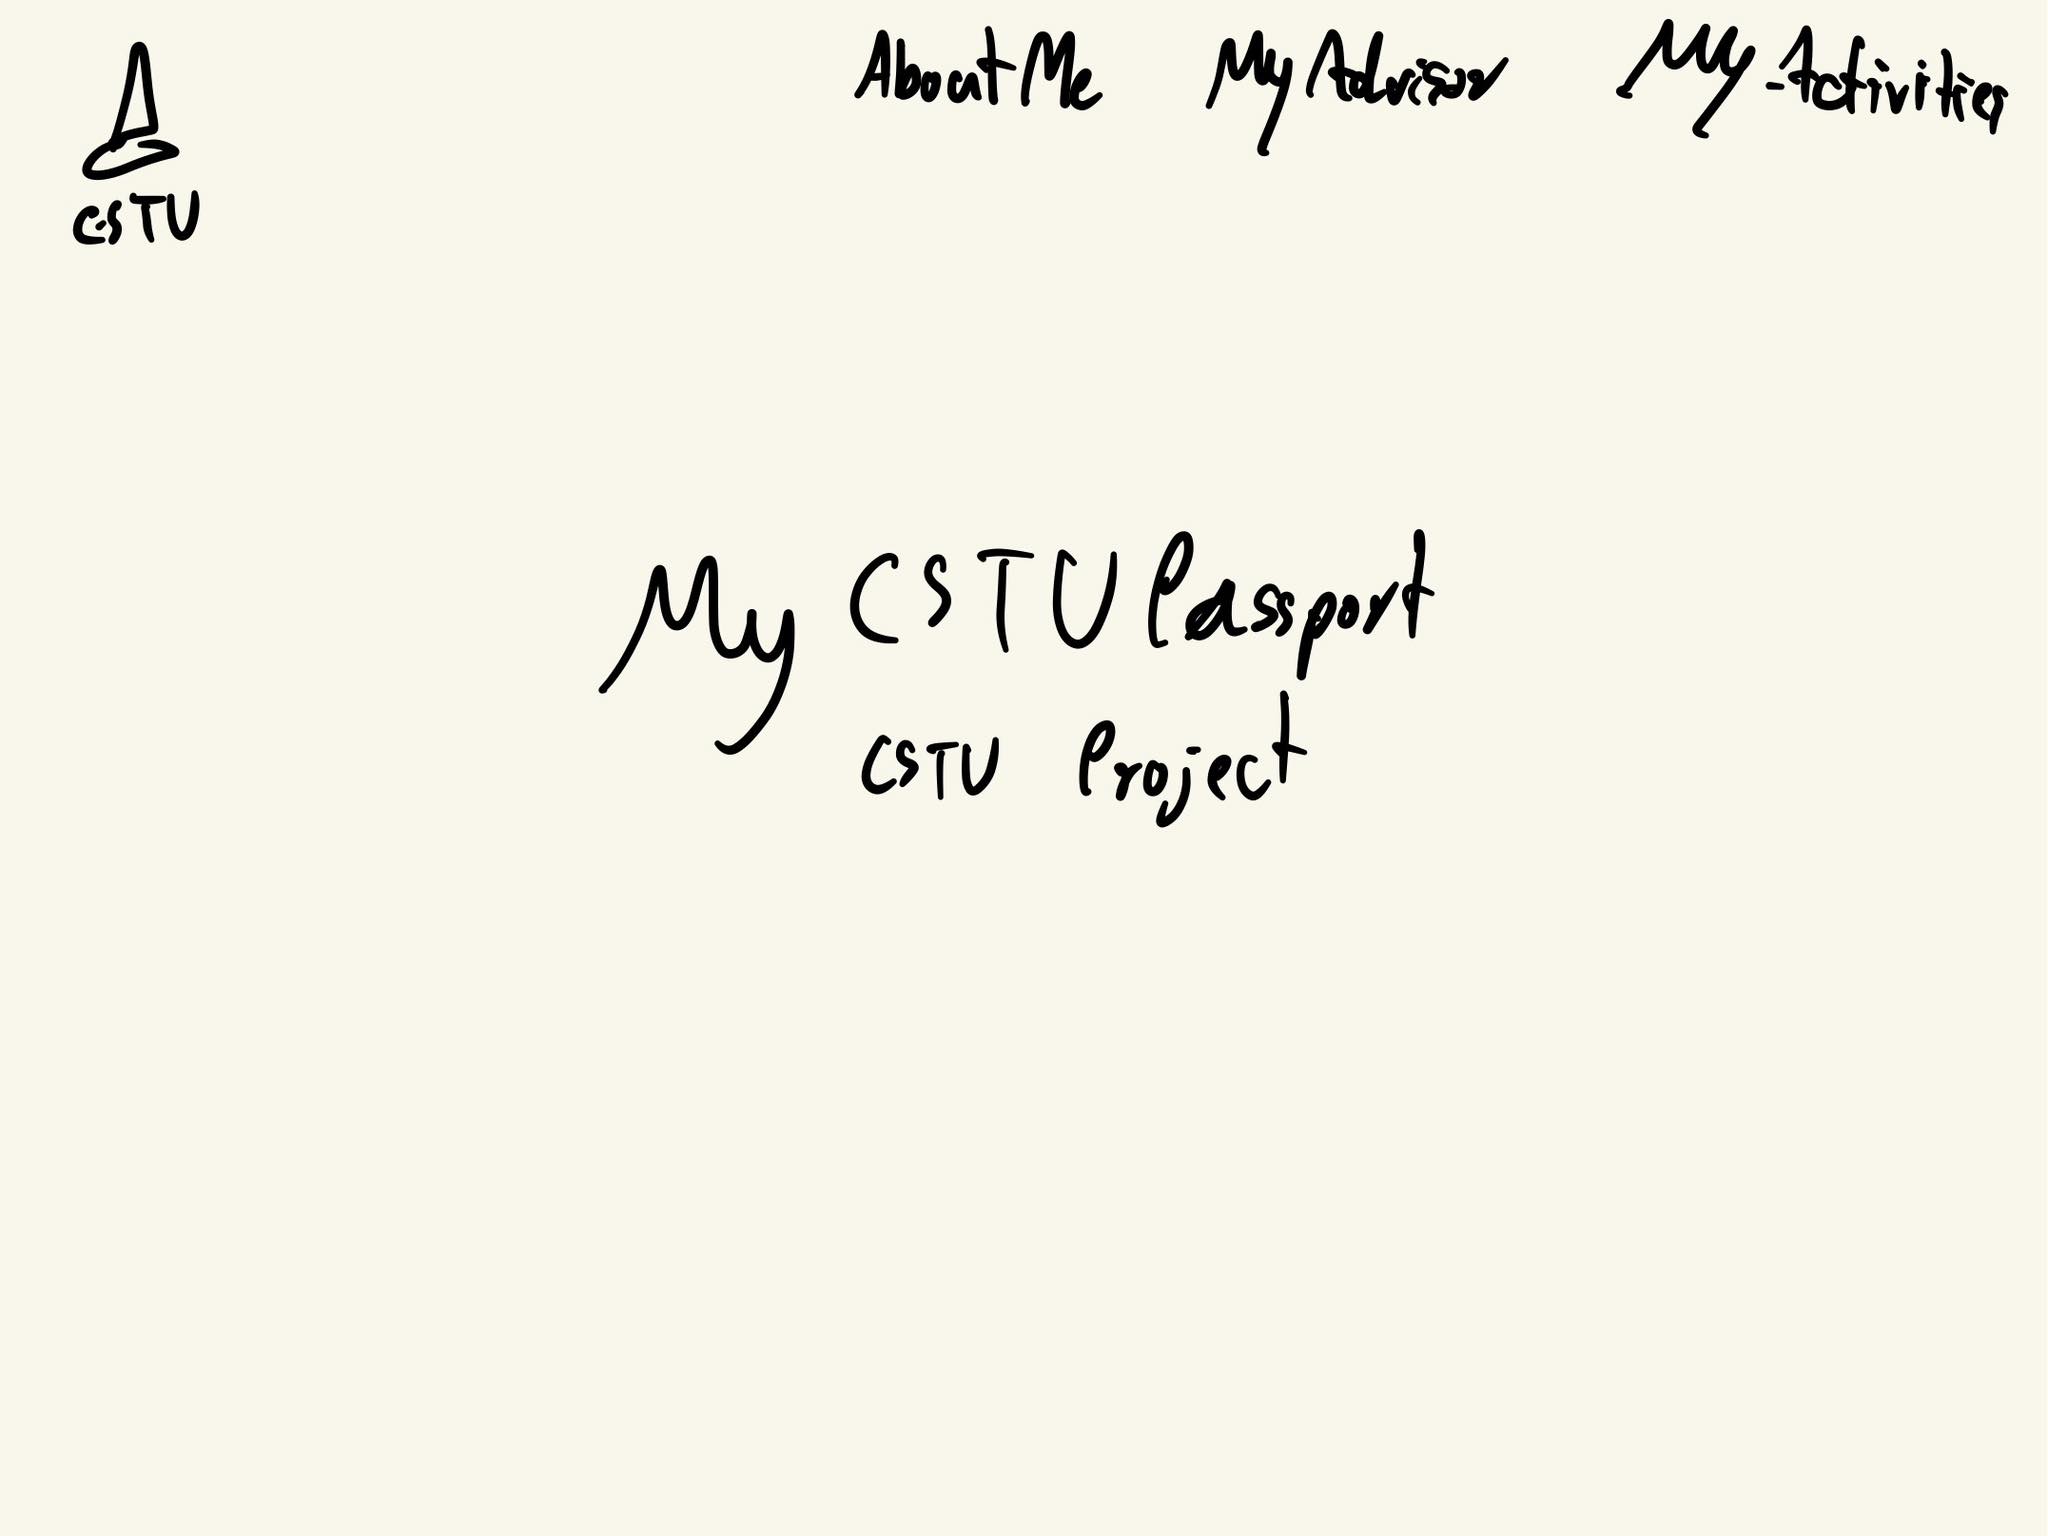 About Me My Advisor My Activities
CSTU
My CSTU Passport
CSTU Project